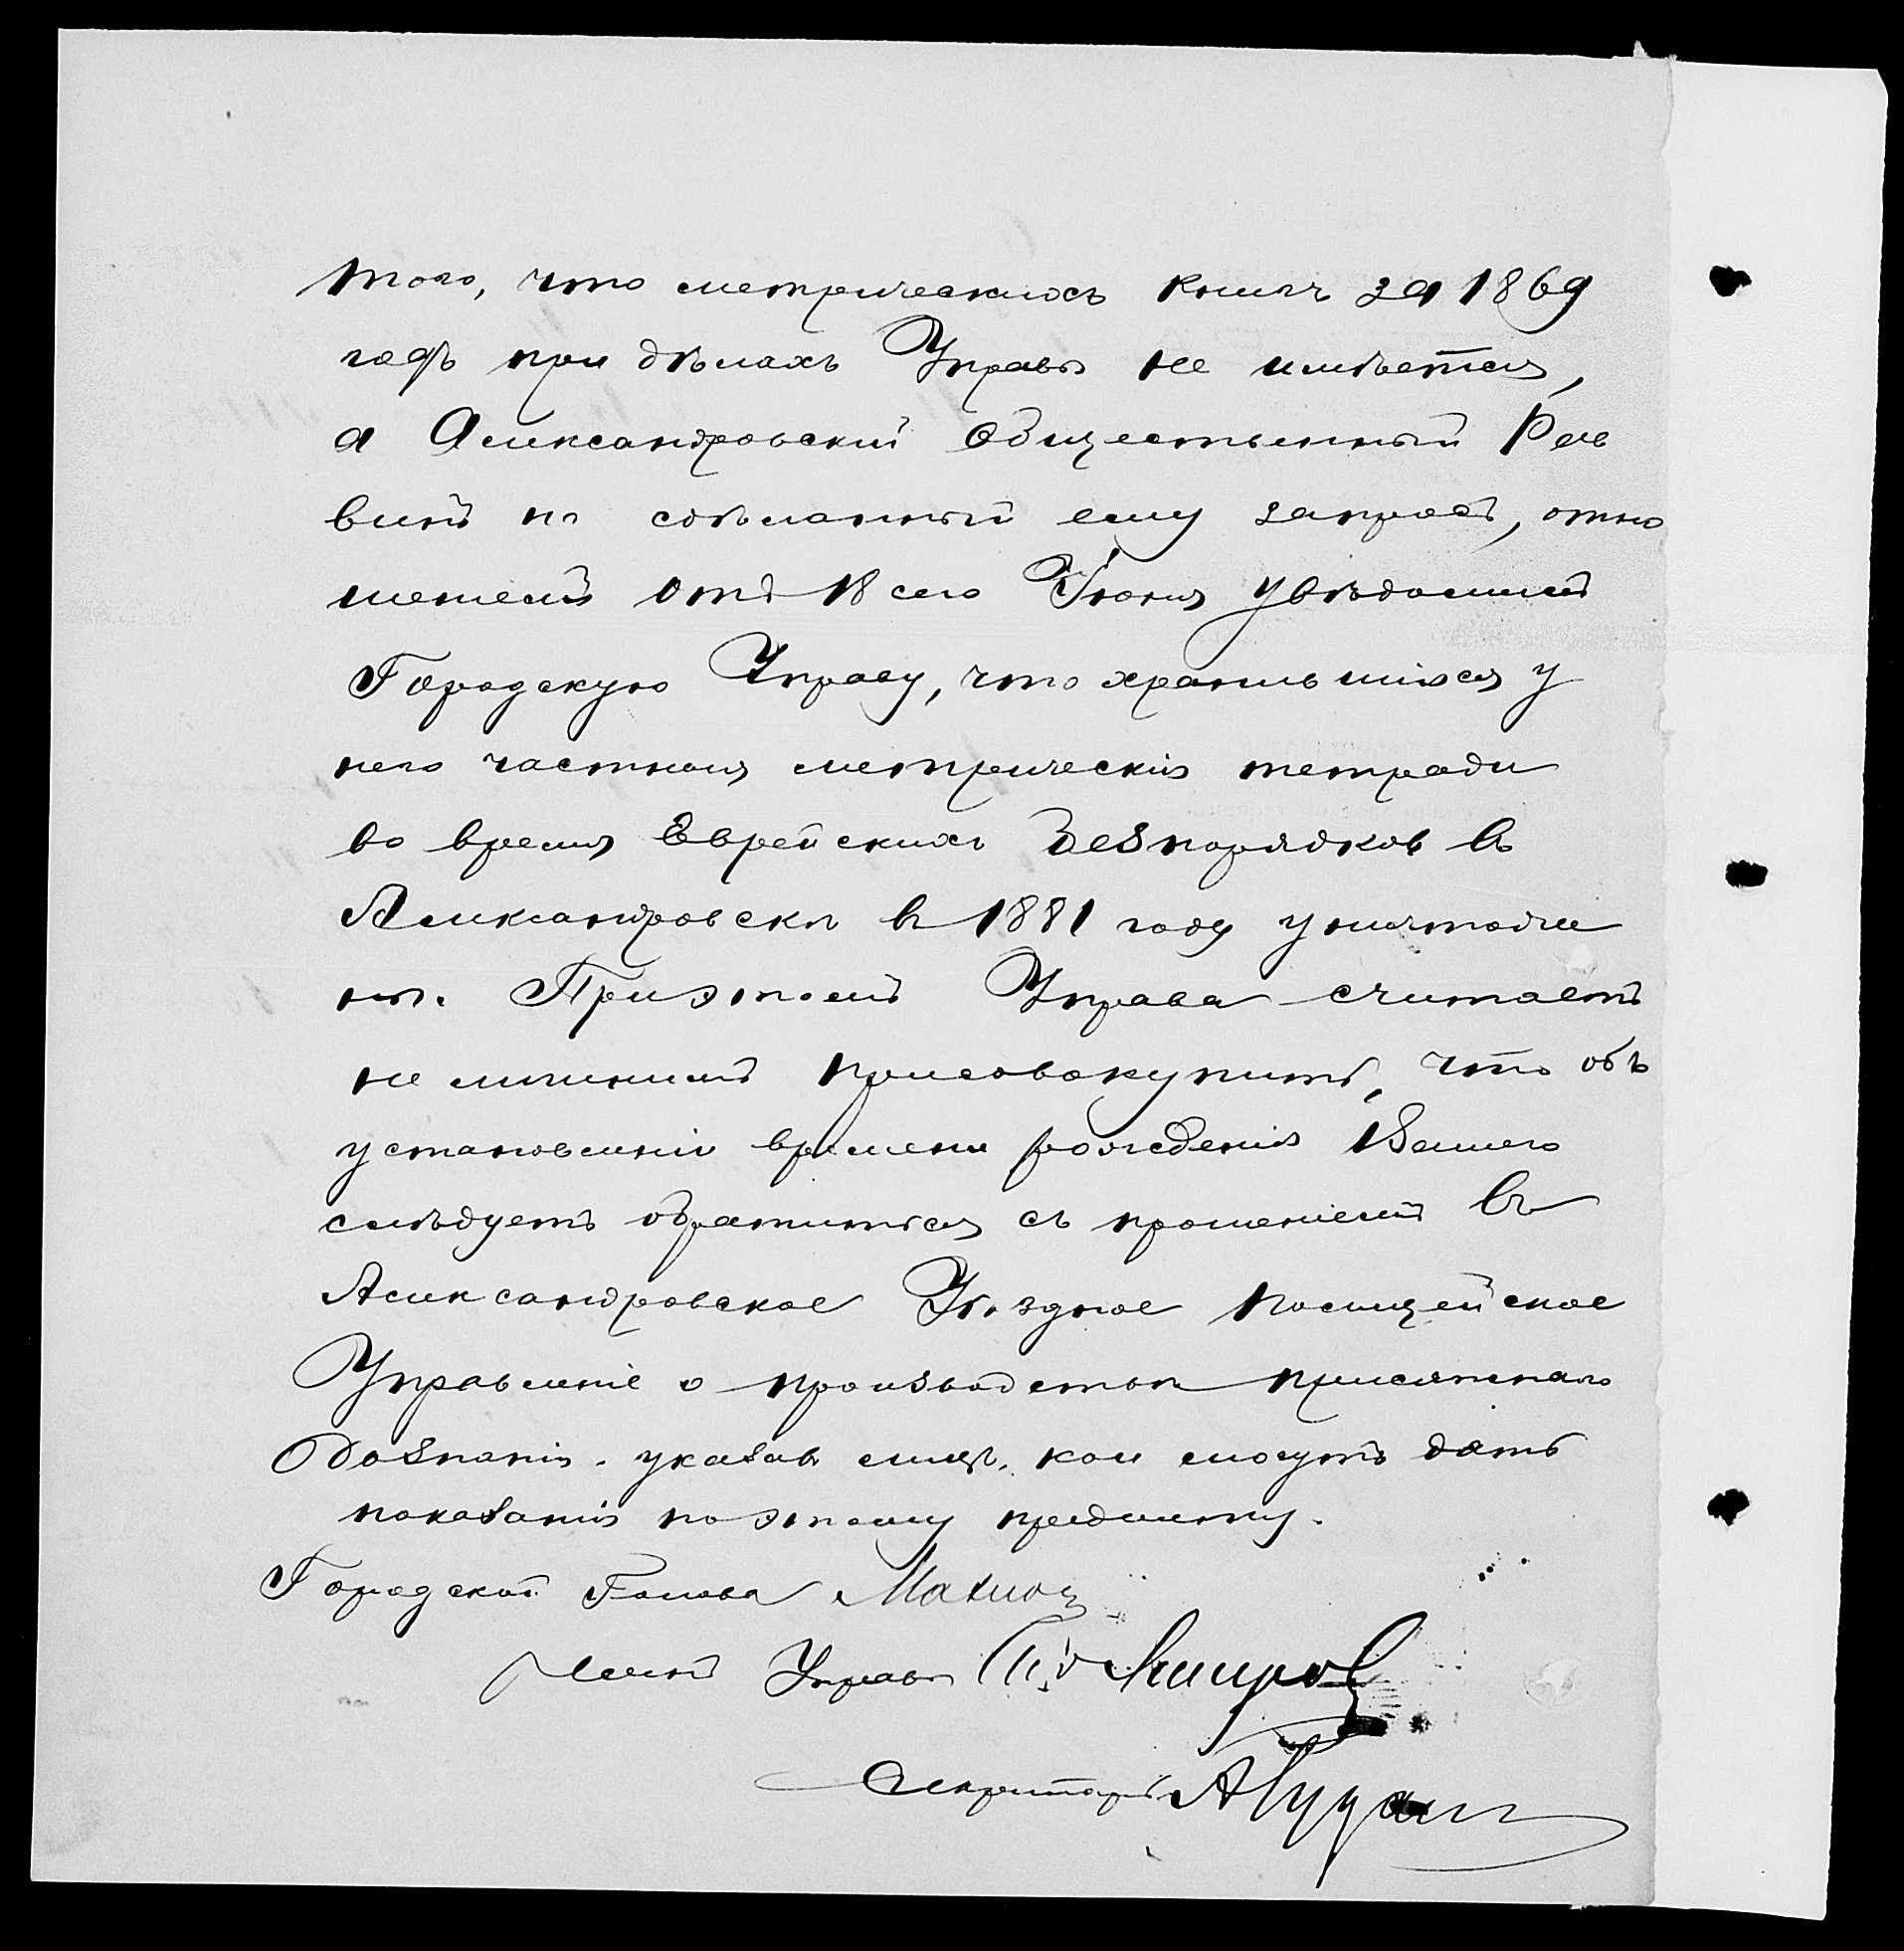 того, что метрическихъ книгъ за 1869
годъ при дѣлахъ Управы не имѣется,
а Александровский Общественный Рав
винъ на сдѣланный ему запросъ, отно
шениемъ отъ 18 сего Іюня увѣдомилъ
Городскую Управу, что хранившіяся у
него частныя метрическія тетради
во время Еврейскихъ безпорядковъ въ
Александровскѣ въ 1881 году уничтоже
ны. При этомъ Управа считаетъ
не лишнимъ присовокупить, что объ
установленіи времени рожденія Вашего
слѣдуетъ обратиться съ прошеніемъ въ
Александровское Уѣздное Полицейское
Управленіе о производствѣ присяжнаго
дознанія. указавъ лицъ, кои могутъ дать
показанія по этому предмету.
Городской Голова
Членъ Управы
Секретарь